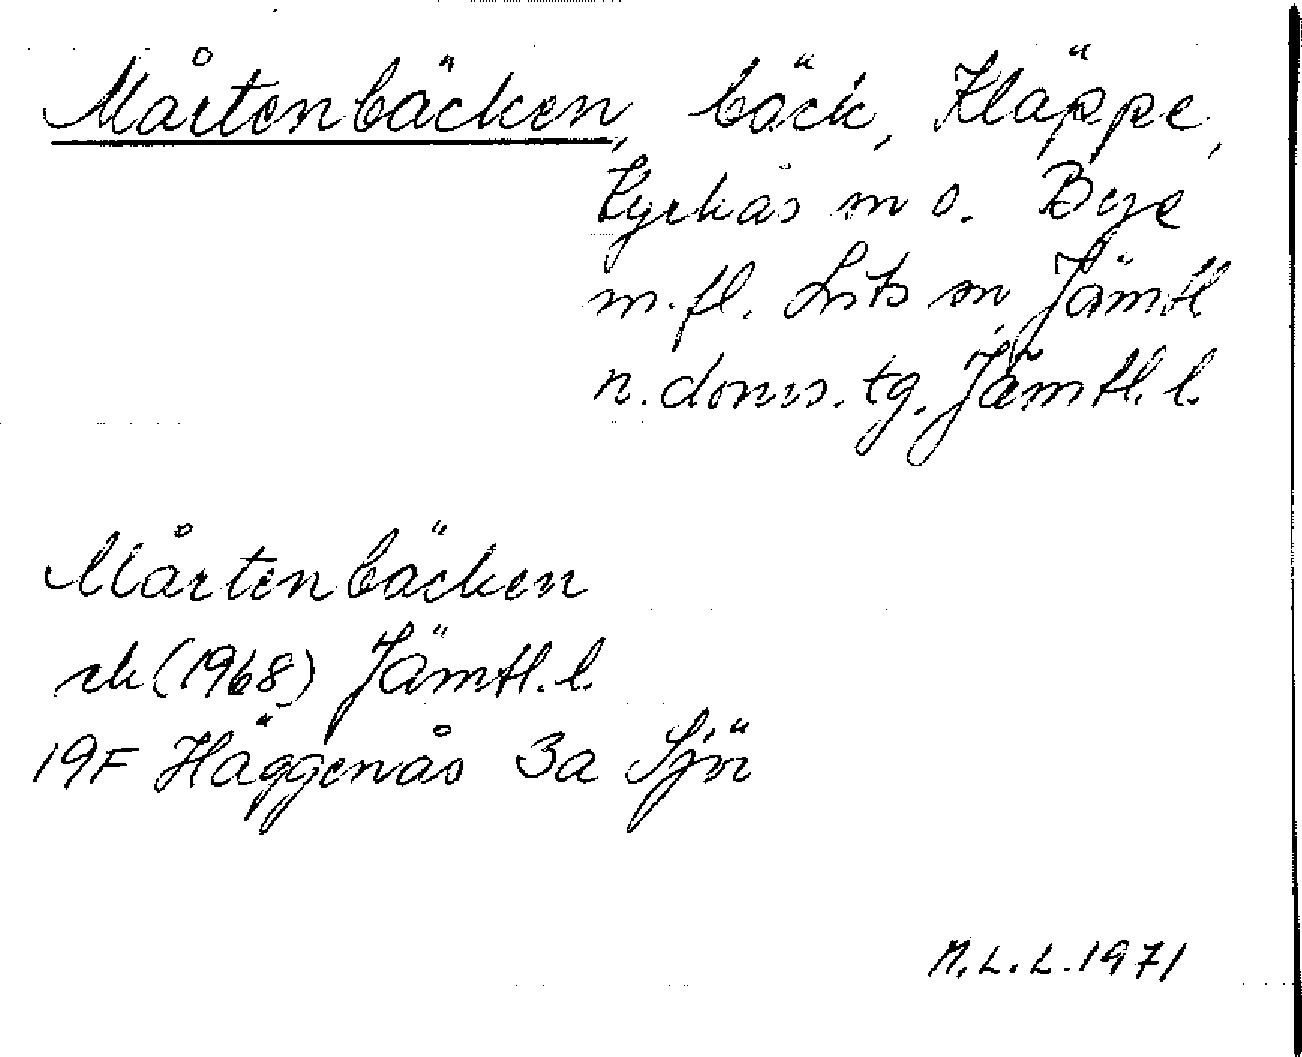 Mårtenbäcken, bäck, Kläppe,
Kyrkås sn o. Bye
m.fl. Lits sn, Jämtl
n. doms. tg. Jämtl. l.
Mårtenbäcken
rk (1968) Jämtl. l.
19F Häggenås 3a Sjör
M.L.L. 1971